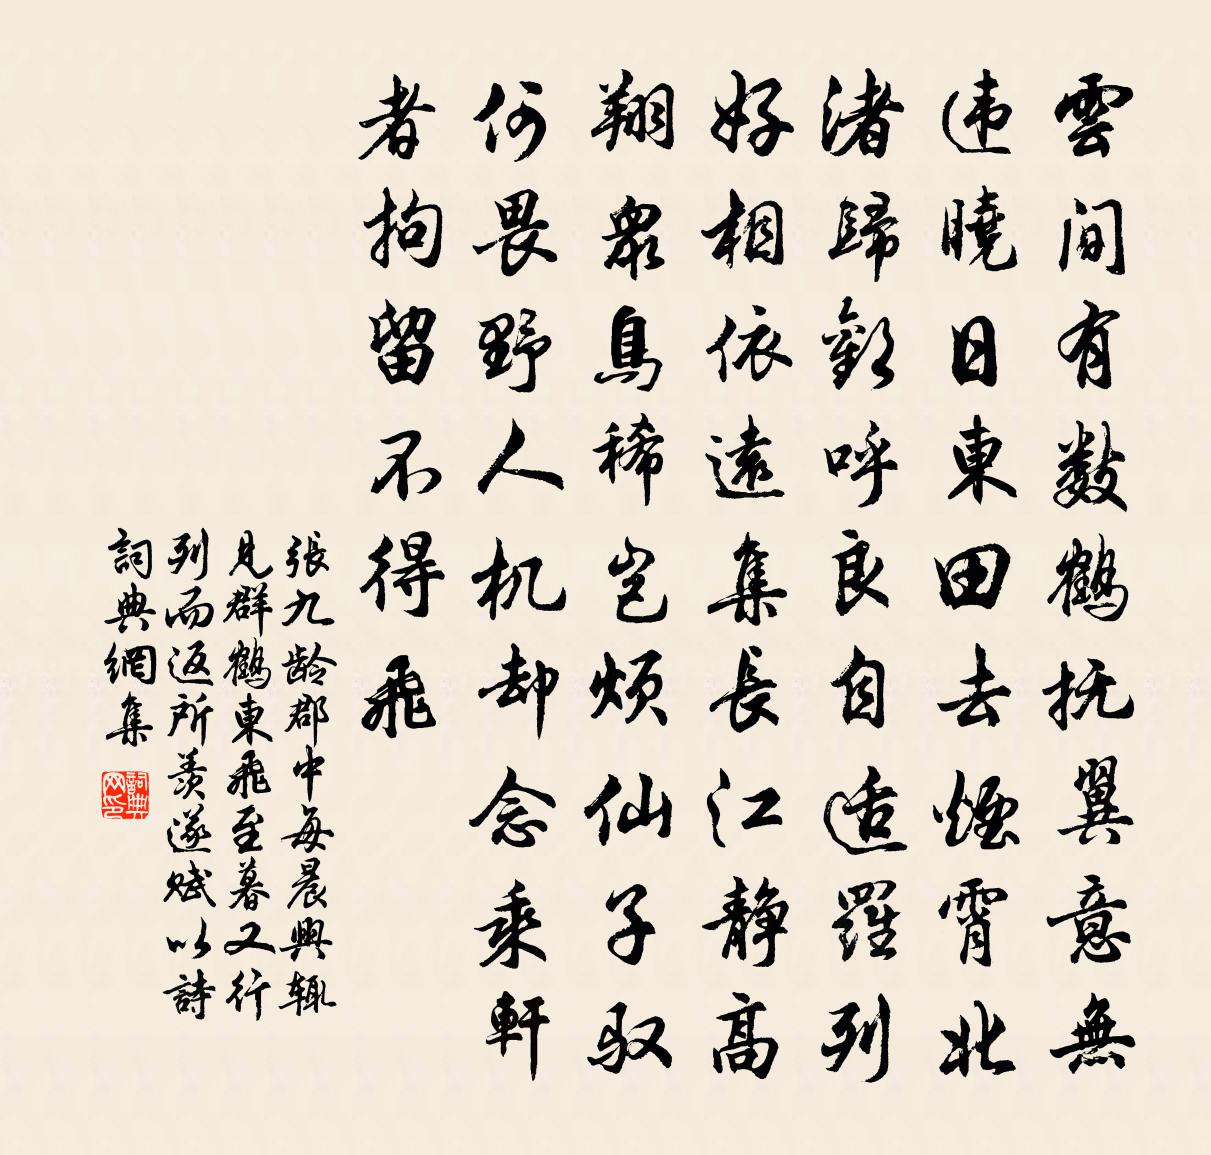 雲间有數鶴抚翼意無
违曉日東田去煙霄北
渚歸歡呼良自适羅列
好相依遠集長江静高
翔眾鳥稀岂烦仙子驭
何畏野人机却念乘軒
者拘留不得飛
張九龄郡中每晨興辄
見群鶴東飛至暮又行
列而返所羡遂赋以詩
詞典網集